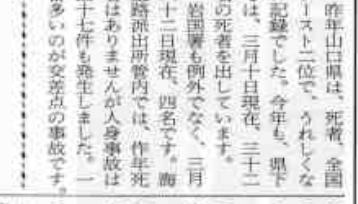 昨年山口県は、死者、全国
ースト二位で、うれしくな
記録でした。今年も、県下
は、三月十日現在、三十二
の死者を出しています。
岩国署も例外でなく、三月
十二日現在、四名です。南
路派出所管内では、作年死
はありませんが人身事故は
十七件も発生しました。一
多いのが交差点の事故です。